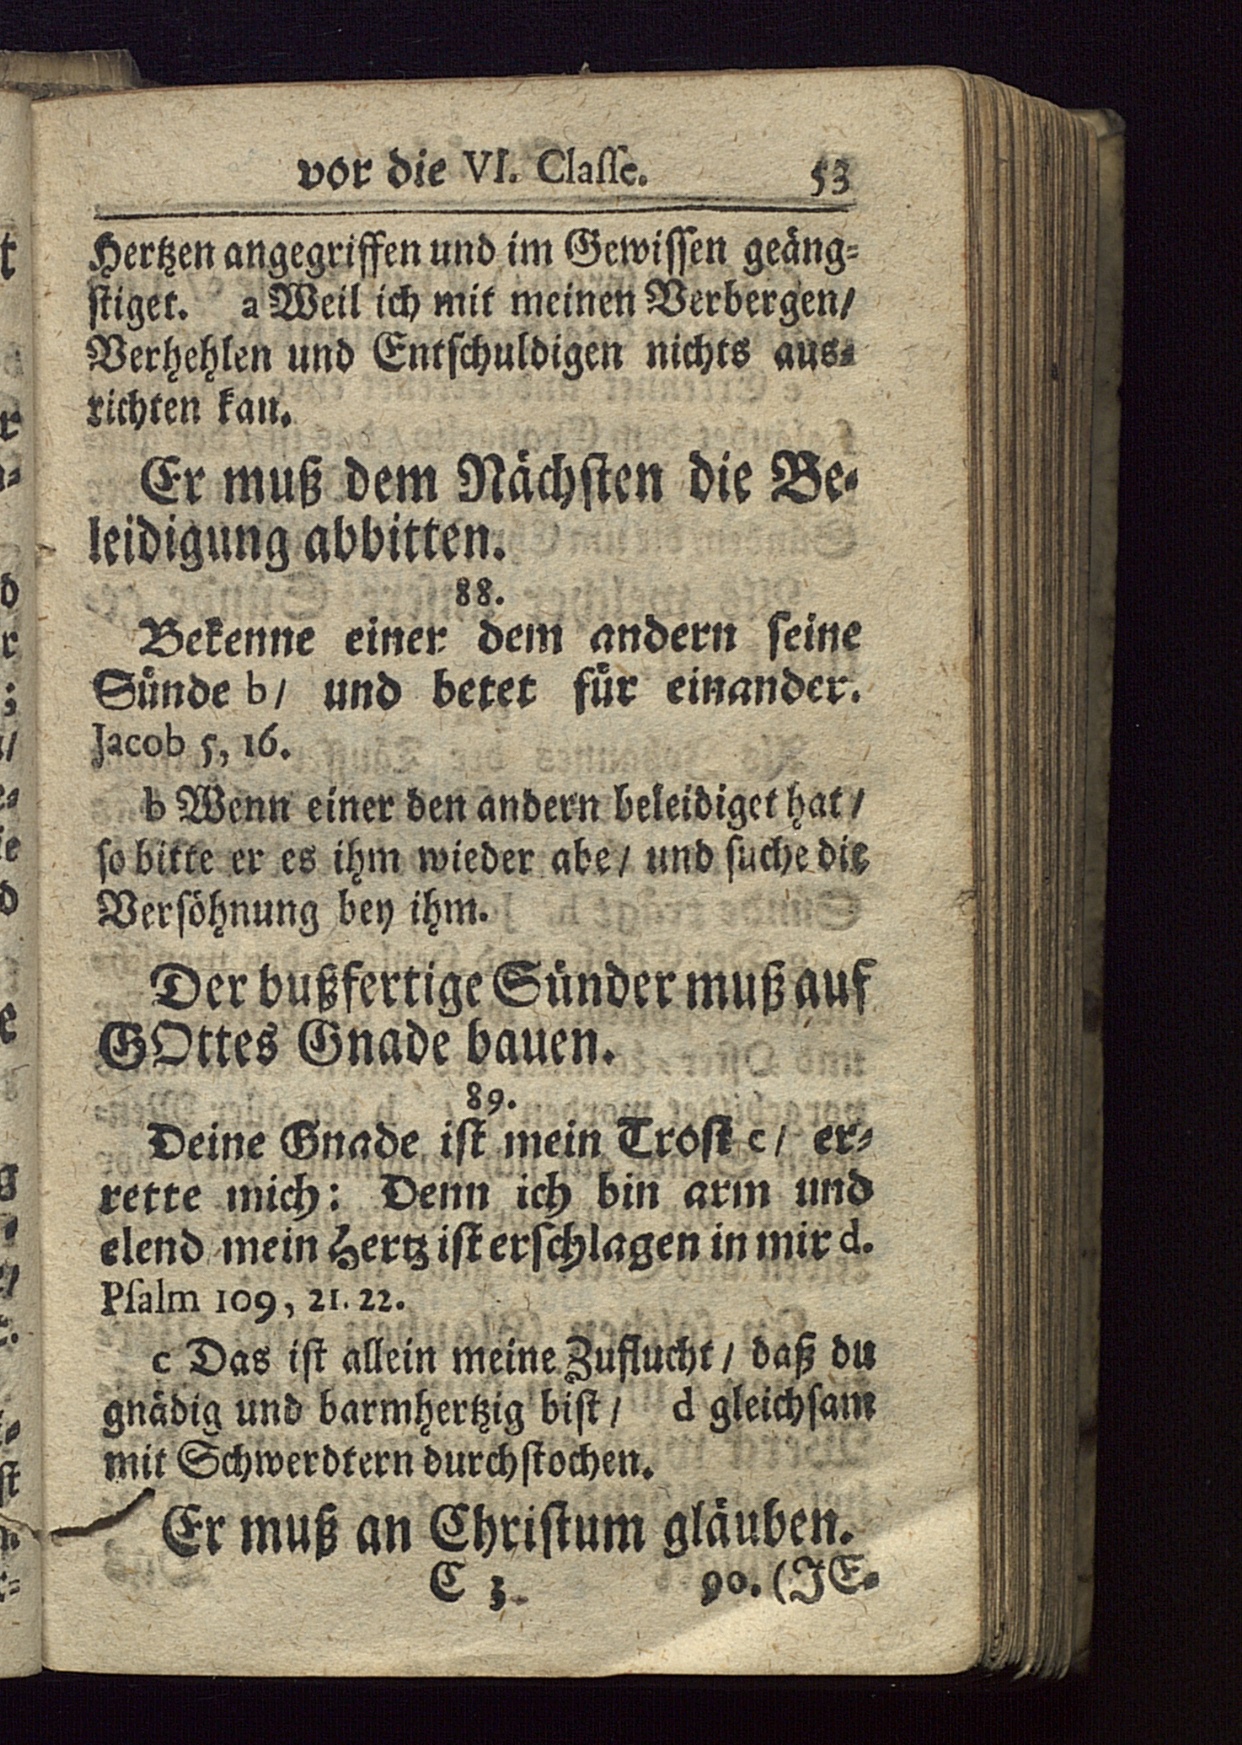 vor die VI. Classe. 53
Hertzen angegriffen und im Gewissen geäng-
stiget. a Weil ich mit meinen Verbergen/
Verhehlen und Entschuldigen nichts aus-
richten kan.
Er muß dem Nächsten die Be-
leidigung abbitten.
88.
Bekenne einer dem andern seine
Sünde b/ und betet für einander.
Jacob 5, 16.
b Wenn einer den andern beleidiget hat/
so bitte er es ihm wieder abe/ und suche die
Versöhnung bey ihm.
Der bußfertige Sünder muß auf
GOttes Gnade bauen.
89.
Deine Gnade ist mein Trost c/ er-
rette mich: Denn ich bin arm und
elend mein Hertz ist erschlagen in mir d.
Psalm 109, 21. 22.
c Das ist allein meine Zuflucht/ daß du
gnädig und barmhertzig bist/ d gleichsam
mit Schwerdtern durchstochen.
Er muß an Christum gläuben.
C 3 90. (JE-